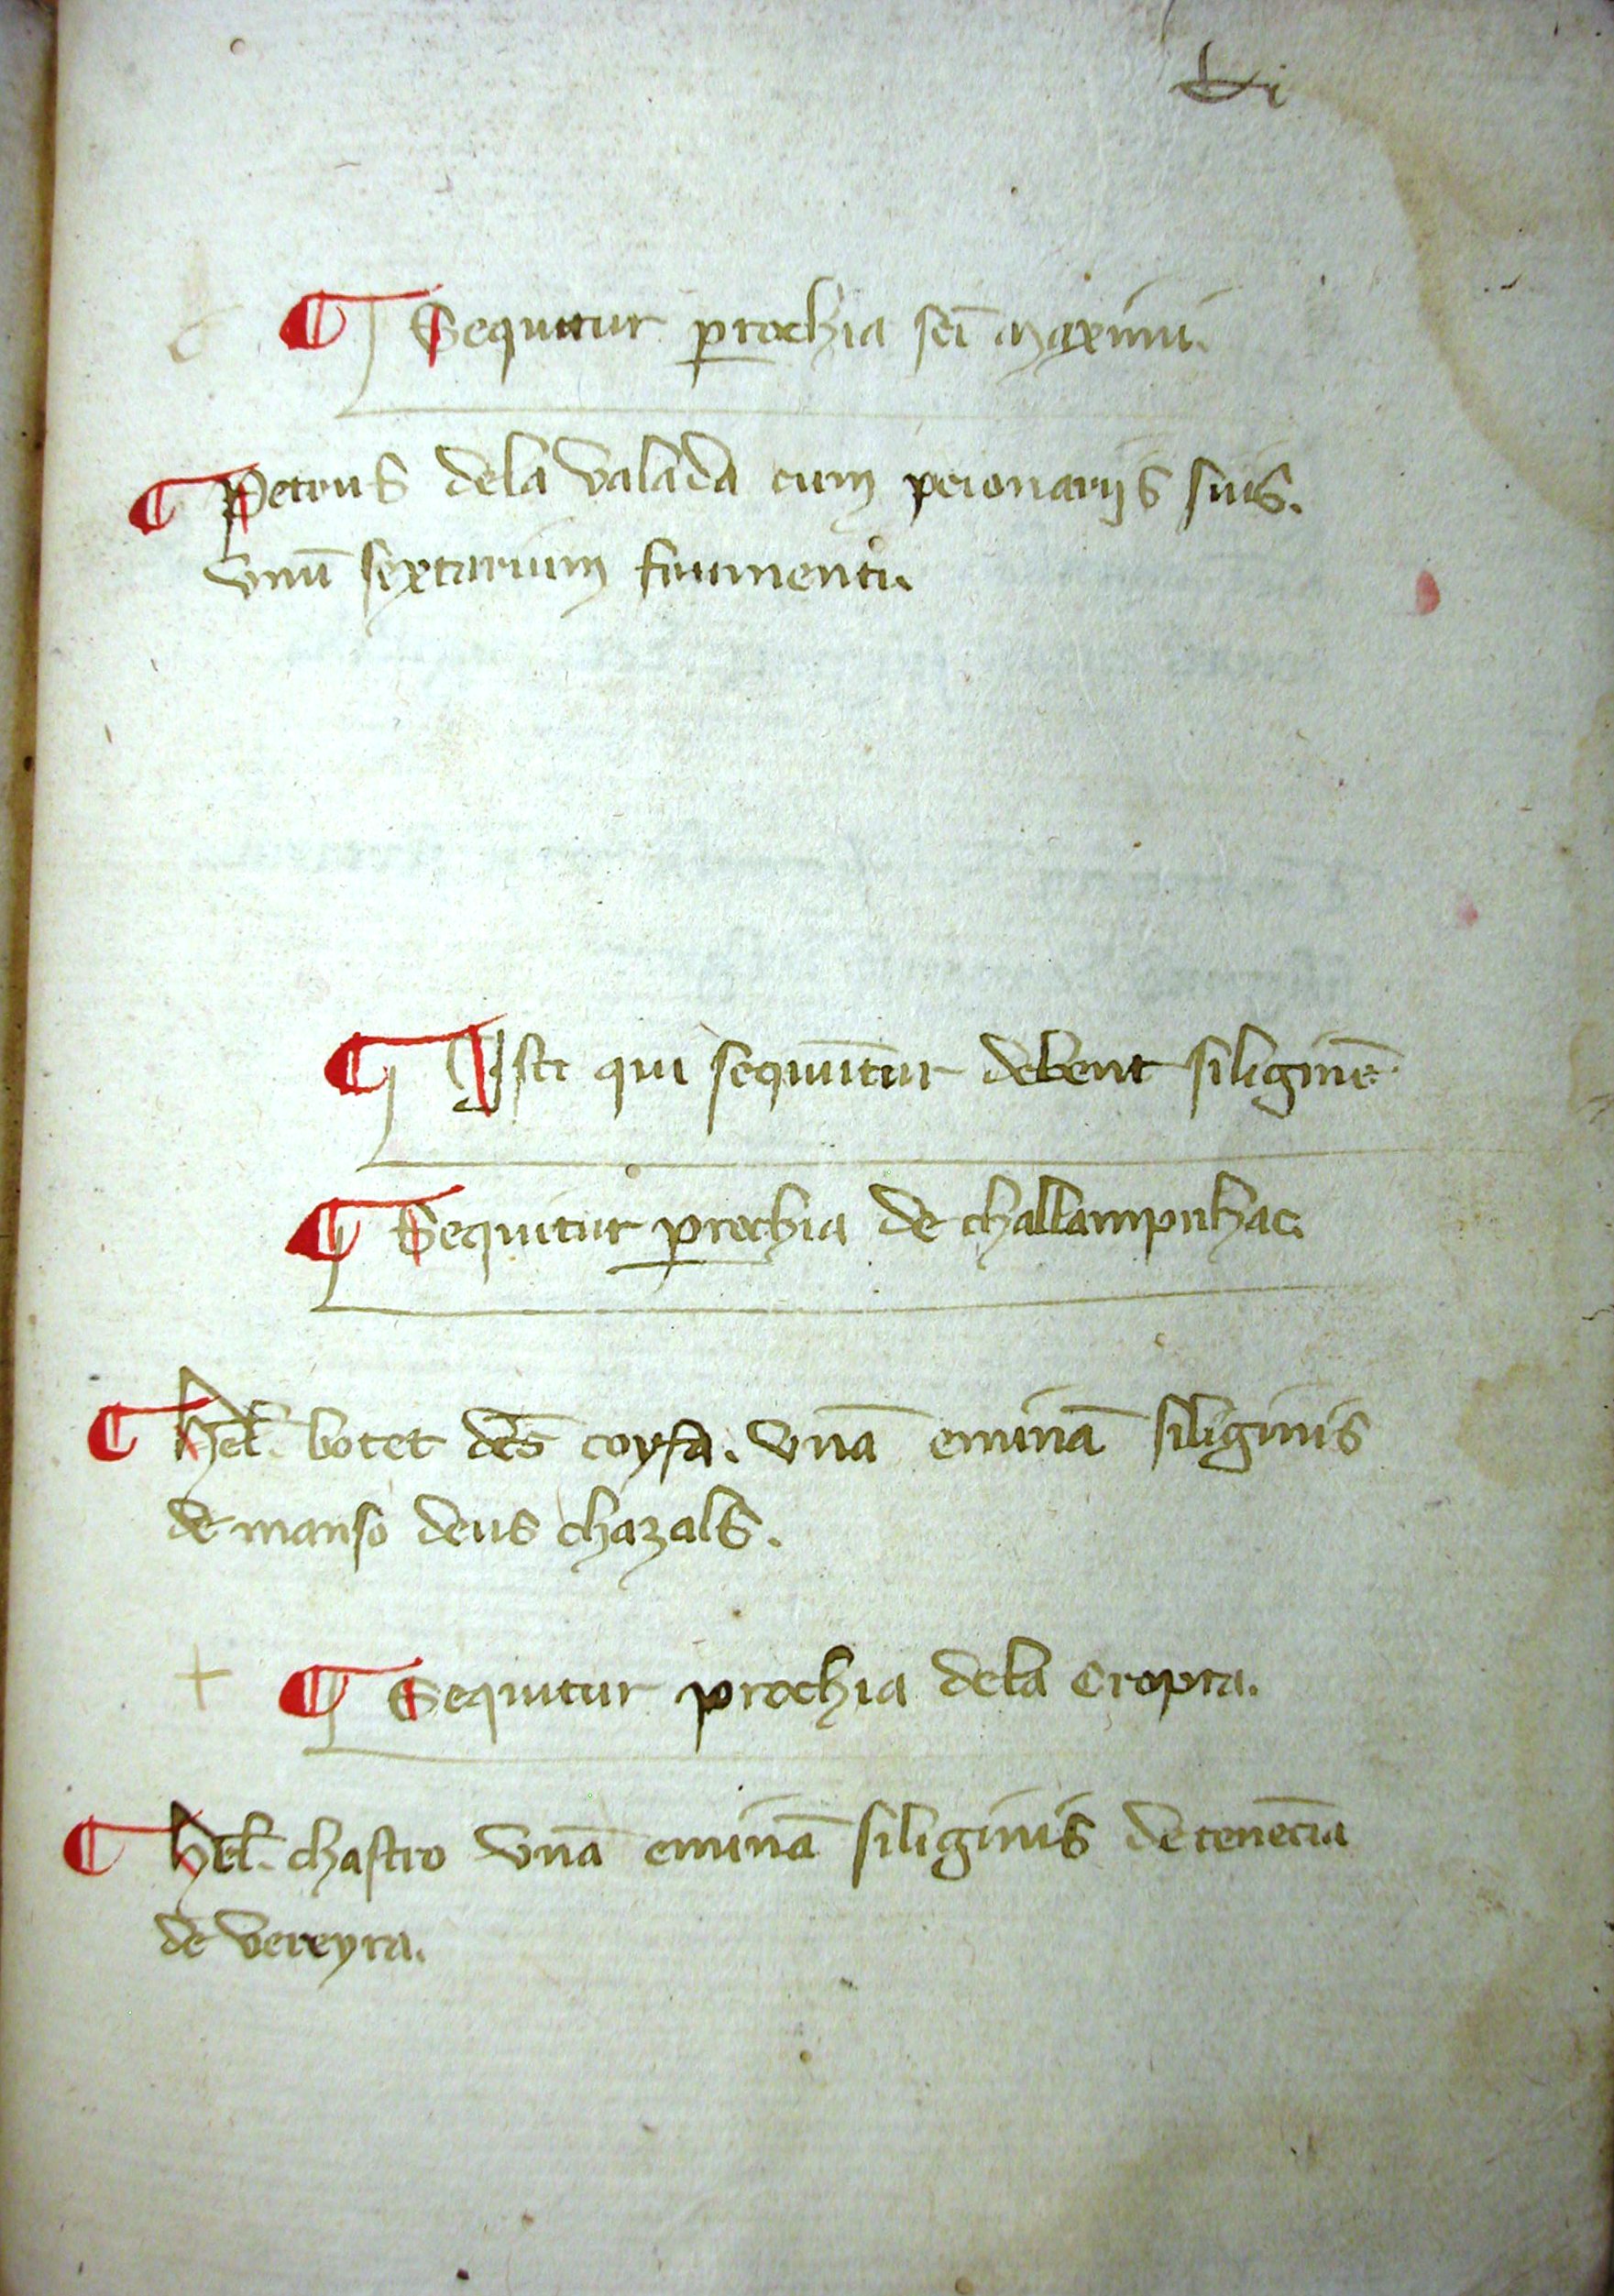 ¶ Sequitur parrochia sci maximi.
¶ Petrus dela valada cum personariis suis.
vnū sextarium frumenti.
¶ Isti qui sequūtur debent siliginē
¶ Sequitur parrochia de challampnhac
¶ hel. botet des coyfa. vnā eminā siliginis
de manso deus chazals.
¶ Sequitur prochia dela Cropta.
¶ hel. chastro vnā eminā siliginis de tenēcia
de vereyra.